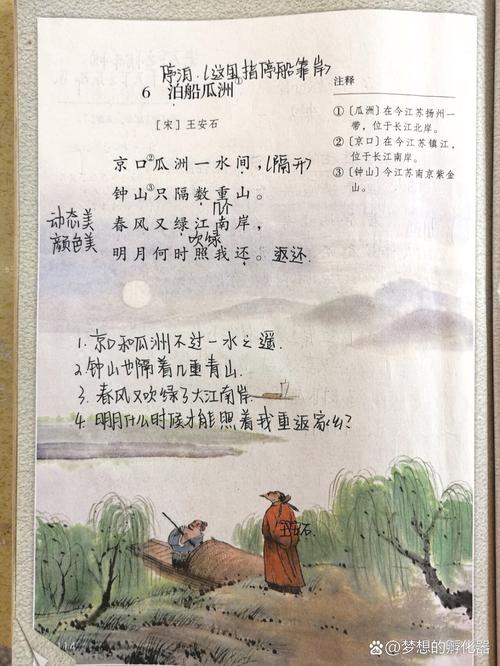 停泊.（这里指停船靠岸）
6 泊船瓜洲①
［宋］王安石
京口②瓜洲一水间，（隔开）
钟山③只隔数重山。
几个
动态美
颜色美
春风又绿江南岸，
吹绿
明月何时照我还。返还.
1.京口和瓜洲不过一水之遥.
2.钟山也隔着几重青山.
3.春风又吹绿了大江南岸.
4.明月什么时候才能照着我重返家乡？
注释
①［瓜洲］在今江苏扬州一
带，位于长江北岸。
②［京口］在今江苏镇江，
位于长江南岸。
③［钟山］今江苏南京紫金
山。
王安石.
114
Bai度百科@梦想的孵化器